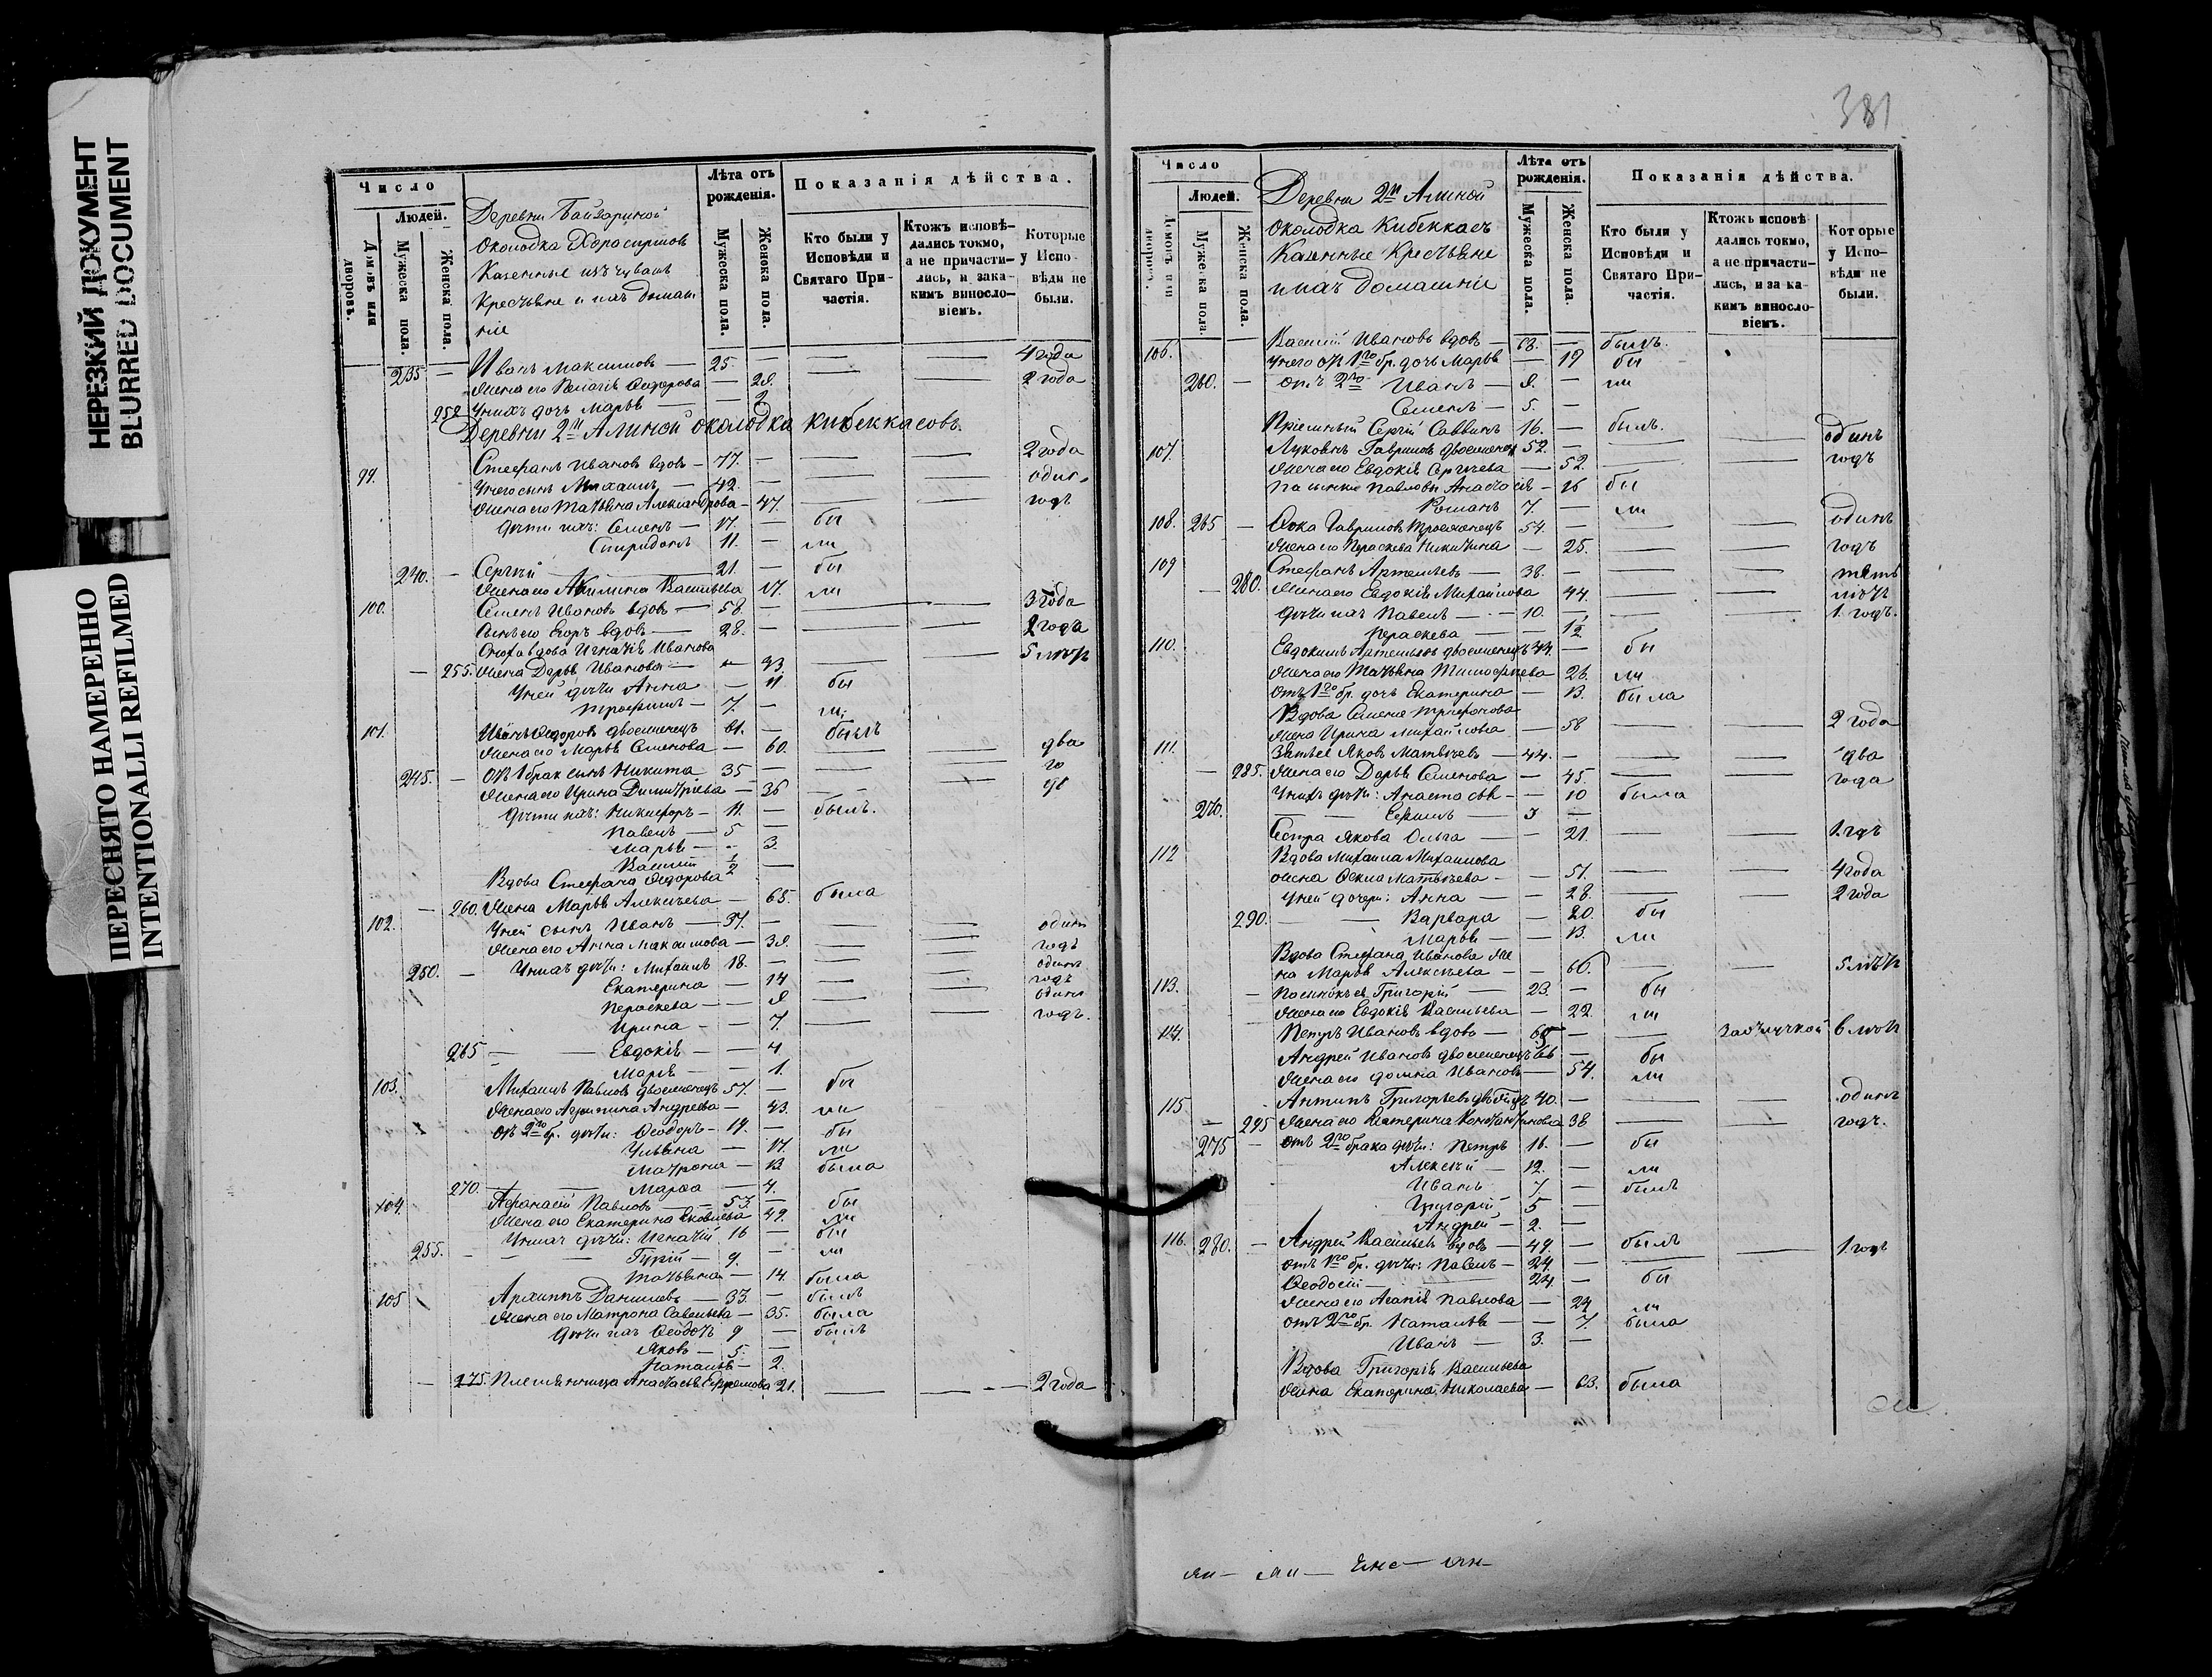 НЕРЕЗКИЙ ДОКУМЕНТ
BLURRED DOCUMENT
ПЕРЕСНЯТО НАМЕРЕННО
INTENTIONALLI REFILMED
Число
Людей.
Домовъ или дворовъ.
Мужеска пола.
Женска пола.
Деревни Байгариной
Околодка
Казенные изъ чувашъ
Крестьяне и ихъ домаш
ніе
Лѣта отъ рожденія.
Мужеска пола.
Женска пола.
Показанія дѣйства.
Кто были у Исповѣди и Святаго Причастія.
Ктожъ исповѣдались токмо, а не причастились, и за какимъ винословіемъ.
Которые у Исповѣди не были.
235 — Иванъ Максимовъ — 25. — 4 года
Жена его Пелагія Ѳедорова — 28. 2 года
252 У нихъ дочь Марья — 2
Деревни 2й Алиной околодка Кибеккасовъ.
99. Стефанъ Ивановъ вдовъ — 77. — 2 года
У него сынъ Михаилъ — 42. — одинъ
Жена его Татьяна Александрова — 47. годъ
Дѣти ихъ: Семенъ — 17. — бы
Спиридонъ 11. — ли
240. — Сергѣй — 21. — бы
Жена его Акилина Васильева 17. ли
100. Семенъ Ивановъ вдовъ — 58. — 3 года
Сынъ его Егоръ вдовъ — 28. — 2 года
Снохa вдова Игнатія Иванова
255. Жена Дарья Иванова — 33. 5 лѣтъ
У ней дѣти Анна — 11 бы
Трофимъ — 7. — ли
101. Иванъ Ѳедоровъ двоеженецъ 61. — былъ
Жена его Марья Семенова — 60. два
245. — Отъ 1 брак сынъ Никита 35 — го
Жена его Ирина Димитріева — 36 да
Дѣти ихъ: Никифоръ — 11. — былъ.
Павелъ — 5 —
Марья — 3.
Василій ½ —
Вдова Стефана Ѳедорова
260. Жена Марья Алексѣева — 65. была
102. У ней сынъ Иванъ — 37. — одинъ
Жена его Анна Максимова — 38. годъ
250. — У нихъ дѣти: Михаилъ 18. — одинъ
Екатерина — 14 годъ
Пераскева — 8 одинъ
Ирина — 7. годъ.
265 — Евдокія — 4
Марія — 1.
103. Михаилъ Павловъ двоеженецъ 57. — бы
Жена его Агрипина Андреева — 43. ли
отъ 2го бр. дѣти: Ѳеодоръ — 19. — бы
Ульяна — 17. ли
Матрона — 13 была
270. — Марѳа — 4.
104. Афанасій Павловъ — 53. — бы
Жена его Екатерина Яковлева 49. ли
У нихъ дѣти: Игнатій 16 — бы
255. — Гурій — 9. — ли
Татьяна — 14. была
105 Архиппъ Даниловъ — 33. — былъ
Жена его Матрона Савельева — 35. была
Дѣти ихъ Ѳеодотъ 9 — былъ
Яковъ — 5. —
Наталья — 2.
275. Племянница Анастасія Ефремова 21. 2 года
381
Число
Людей.
Домовъ или дворовъ.
Мужеска пола.
Женска пола.
Деревни 2й Алиной
околодка Кибеккасъ
Казенные Крестьяне
и ихъ домашніе
Лѣта отъ рожденія.
Мужеска пола.
Женска пола.
Показанія дѣйства.
Кто были у Исповѣди и Святаго Причастія.
Ктожъ исповѣдались токмо, а не причастились, и за какимъ винословіемъ.
Которые у Исповѣди не были.
106. Василій Ивановъ вдовъ — 63. — былъ.
У него отъ 1го бр. дочь Марья — 19 бы
260. — отъ 2го Иванъ — 8. — ли
Семенъ — 5. —
Пріемный Сергій Саввинъ 16. — былъ.
107. Гавриловъ двоеженец 52. — одинъ
Жена его Евдокія Сергѣева — 52. годъ
Павловы Анастасія — 16 бы
Романъ 7. — ли
108. 265 — Ѳока Гавриловъ троеженецъ 54. — одинъ
Жена его Пераскева Никитина — 25. годъ
109 Стефанъ Артемьевъ — 38. — пять
280. Жена его Евдокія Михайлова 44. лѣтъ
Дѣти ихъ Павелъ — 10. — 1 годъ.
Пераскева — 1½
110. Евдокимъ Артемьевъ двоеженецъ 44. — бы
Жена его Татьяна Тимофѣева 26. ли
Отъ 1го бр. дочь Екатерина — 13. была
Вдова Семена Трифонова
Жена Ирина Михайлова — 58 2 года
111. Яковъ Матвѣевъ — 44. — два
285. Жена его Дарья Семенова — 45. года
У нихъ дѣти: Анастасія — 10 была
270. — Ефимъ — 3 —
Сестра Якова Ольга — 21. 1 годъ
112 Вдова Михаила Михаилова
жена Ѳекла Матвѣева — 57. 4 года
У ней дочери: Анна — 28. 2 года
290. — Варвара — 20. бы
Марья — 13. ли
Вдова Стефана Иванова же
на Марья Алексѣева — 66. 5 лѣтъ
113. Григорій — 23. — бы
Жена его Евдокія Васильева — 22. ли
114. Петръ Ивановъ вдовъ — 65 — 6 лѣтъ
Андрей Ивановъ двоеженецъ 66 — бы
Жена его Домна Иванова — 54. ли
115. Антипъ Григорьевъ 40. — одинъ
295 Жена его Екатерина Константинова 38 годъ.
275 — отъ 2го брака дѣти: Петръ 16. — бы
Алексѣй — 12. — ли
Иванъ 7. — былъ
Григорій 5 —
Андрей — 2. —
116. 280. — Андрей Васильевъ вдовъ — 49. — былъ 1 годъ
отъ 1го бр. дѣти: Павелъ — 24.
Ѳеодосій — 24 — бы
Жена его Агапія Павлова — 24 ли
отъ 2го бр. Наталья — 7. была
Иванъ — 3. —
Вдова Григорія Васильева
Жена Екатерина Николаева — 63. была